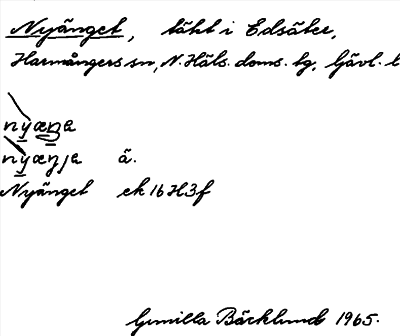 Nyänget, täkt i Edsäter,
Harmångers sn, N. Häls. doms. tg, Gävl. l
nyæŋe
nyæŋje ä.
Nyänget ek 16 H3f
Gunilla Bäcklund 1965.